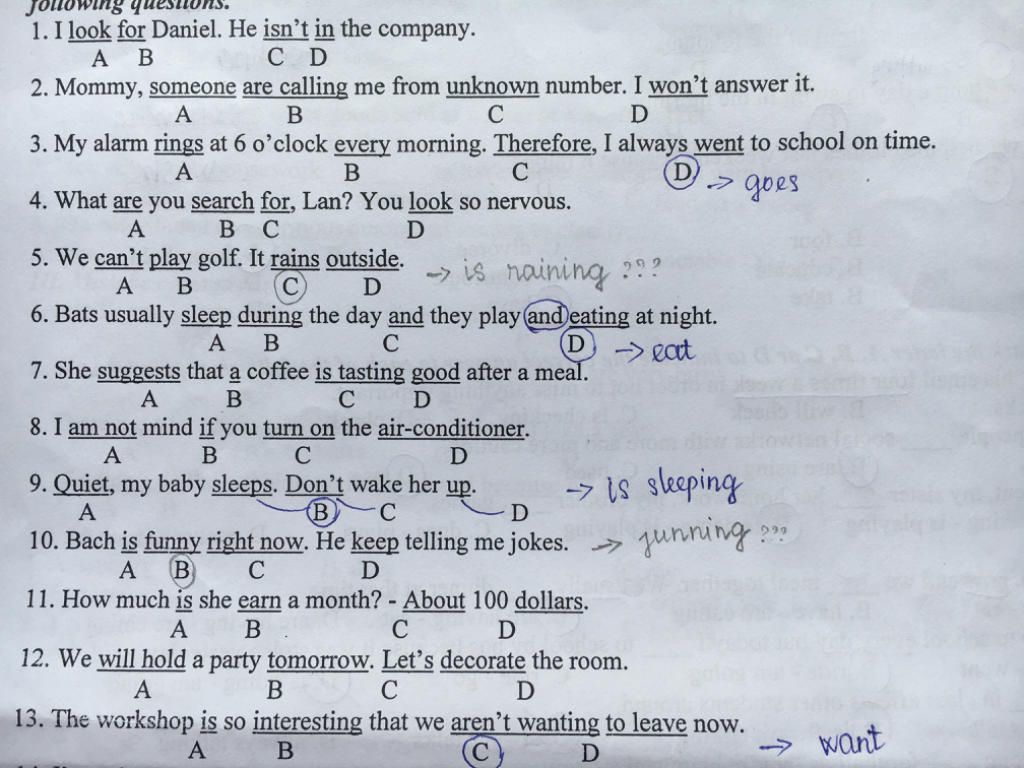 following questions.
1. I look for Daniel. He isn't in the company.
A B C D
2. Mommy, someone are calling me from unknown number. I won't answer it.
A B C D
3. My alarm rings at 6 o'clock every morning. Therefore, I always went to school on time.
A B C D → goes
4. What are you search for, Lan? You look so nervous.
A B C D
5. We can't play golf. It rains outside. → is raining ???
A B C D
6. Bats usually sleep during the day and they play and eating at night.
A B C D → eat
7. She suggests that a coffee is tasting good after a meal.
A B C D
8. I am not mind if you turn on the air-conditioner.
A B C D
9. Quiet, my baby sleeps. Don't wake her up. → is sleeping
A B C D
10. Bach is funny right now. He keep telling me jokes. → funning ???
A B C D
11. How much is she earn a month? - About 100 dollars.
A B C D
12. We will hold a party tomorrow. Let's decorate the room.
A B C D
13. The workshop is so interesting that we aren't wanting to leave now.
A B C D → want